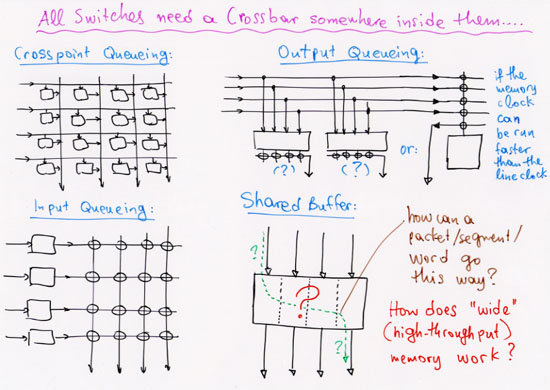 All Switches need a Crossbar somewhere inside them....
Crosspoint Queueing:
Output Queueing:
if the
memory
clock
can
be run
faster
than the
line clock.
(?)
(?)
or:
Input Queueing:
Shared Buffer:
?
?
?
how can a
packet/segment/
word go
this way?
How does "wide"
(high-throughput)
memory work?